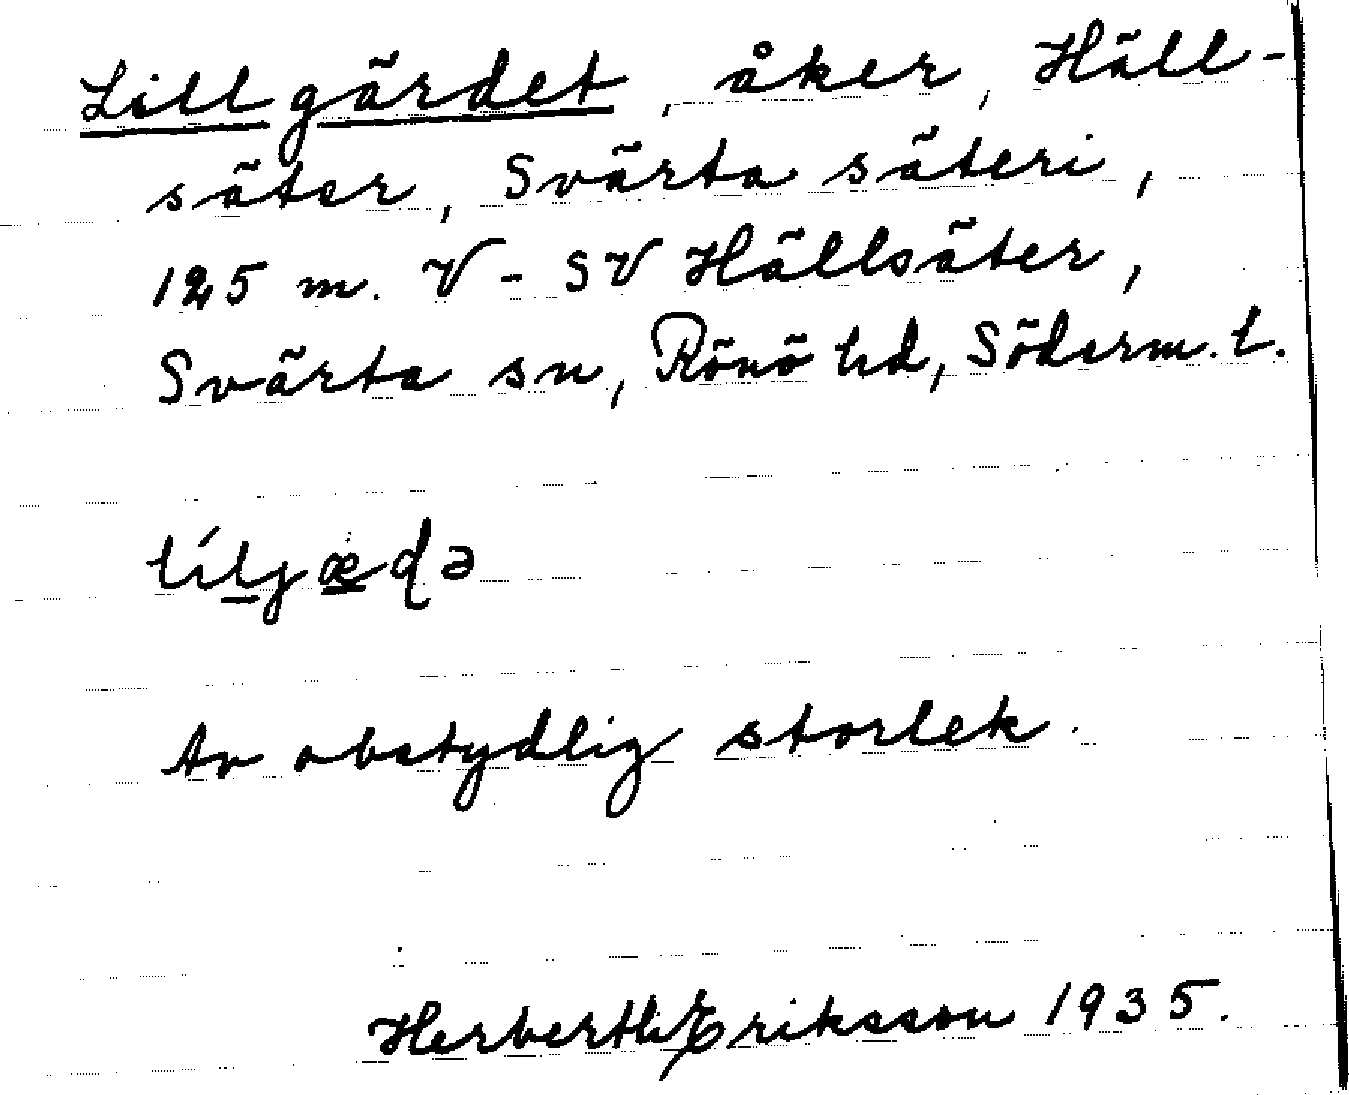 Lillgärdet, åker, Häll-
säter, Svärta säteri,
125 m. V - SV Hällsäter,
Svärta sn, Rönö hd, Söderm. l.
líljæɖə
Av obetydlig storlek.
Herberth Eriksson 1935.